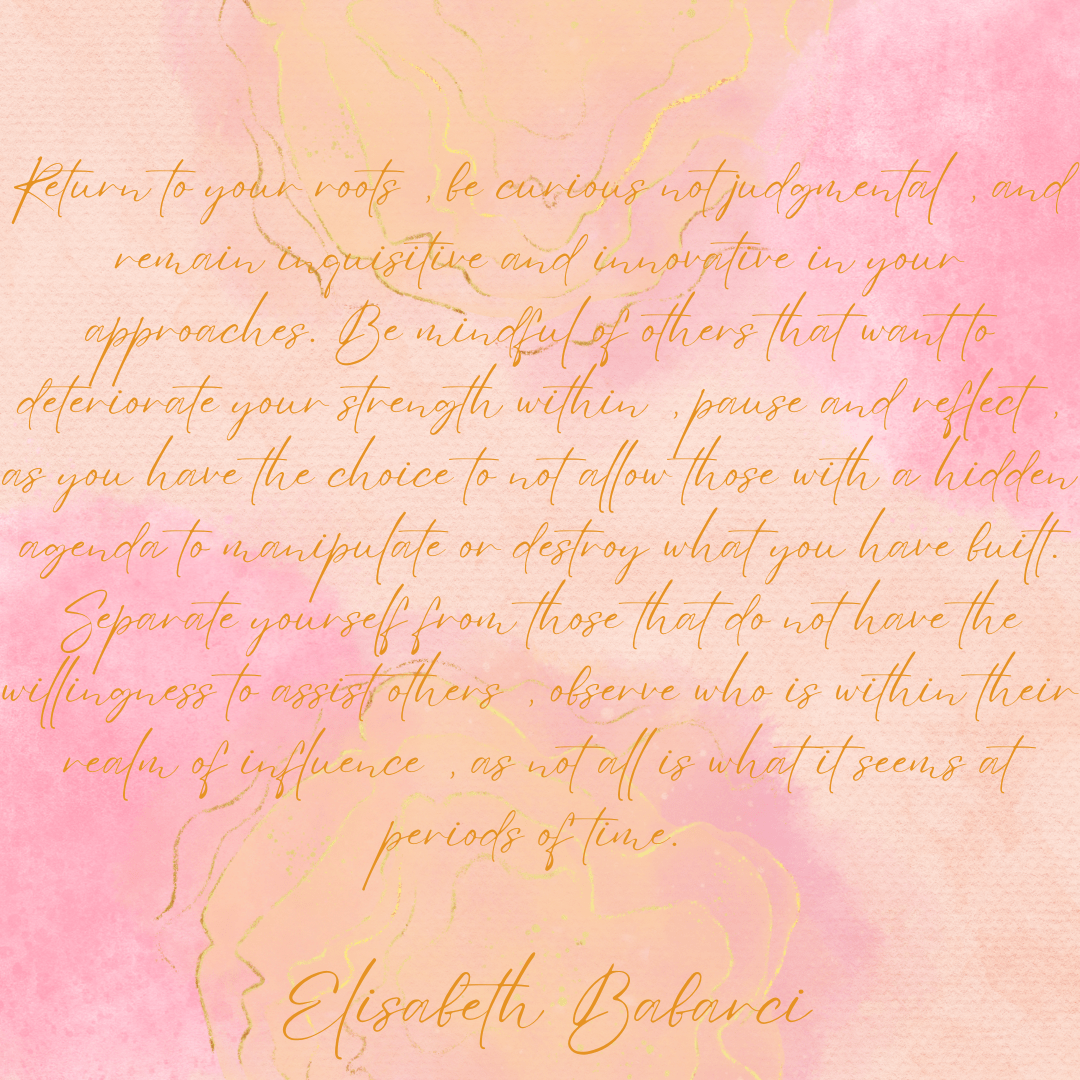 Return to your roots , be curious not judgmental , and
remain inquisitive and innovative in your
approaches. Be mindful of others that want to
deteriorate your strength within , pause and reflect ,
as you have the choice to not allow those with a hidden
agenda to manipulate or destroy what you have built.
Separate yourself from those that do not have the
willingness to assist others , observe who is within their
realm of influence , as not all is what it seems at
periods of time.
Elisabeth Babarci